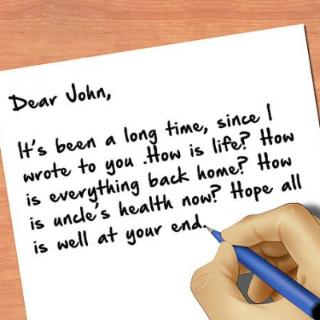 Dear John,
It's been a long time, since I
wrote to you .How is life? How
is everything back home? How
is uncle's health now? Hope all
is well at your end